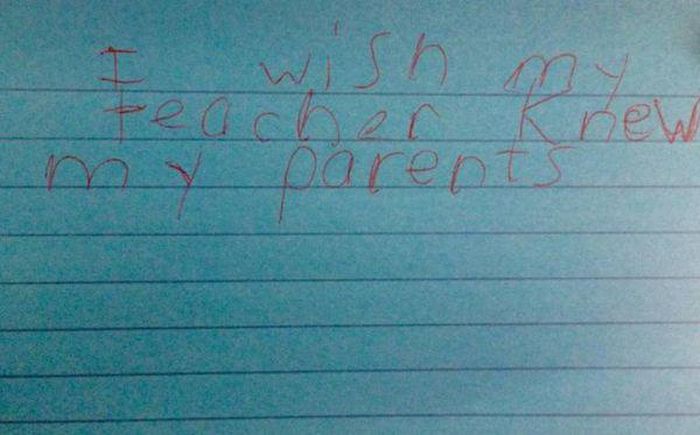 I wish my
teacher knew
my parents